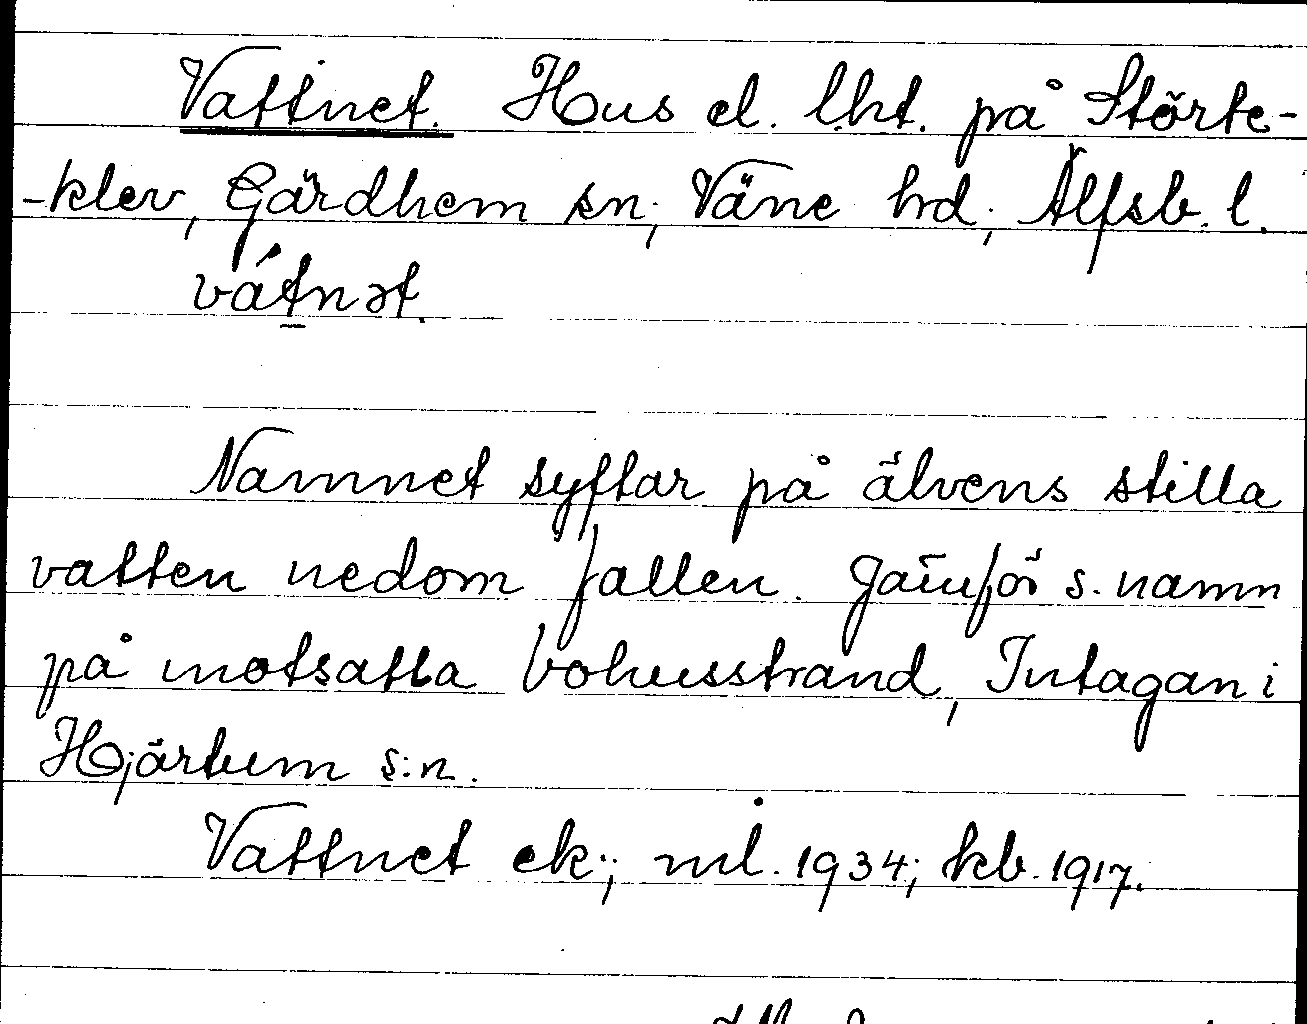 Vattnet. Hus el. lht. på Störte-
-klev, Gärdhem sn, Väne hd, Älfsb. l.
vátnət.
Namnet syftar på älvens stilla
vatten nedom fallen. Jämför s. namn
på motsatta bohusstrand, Intagan i
Hjärtum s:n.
Vattnet ek; ml. 1934; kb. 1917.